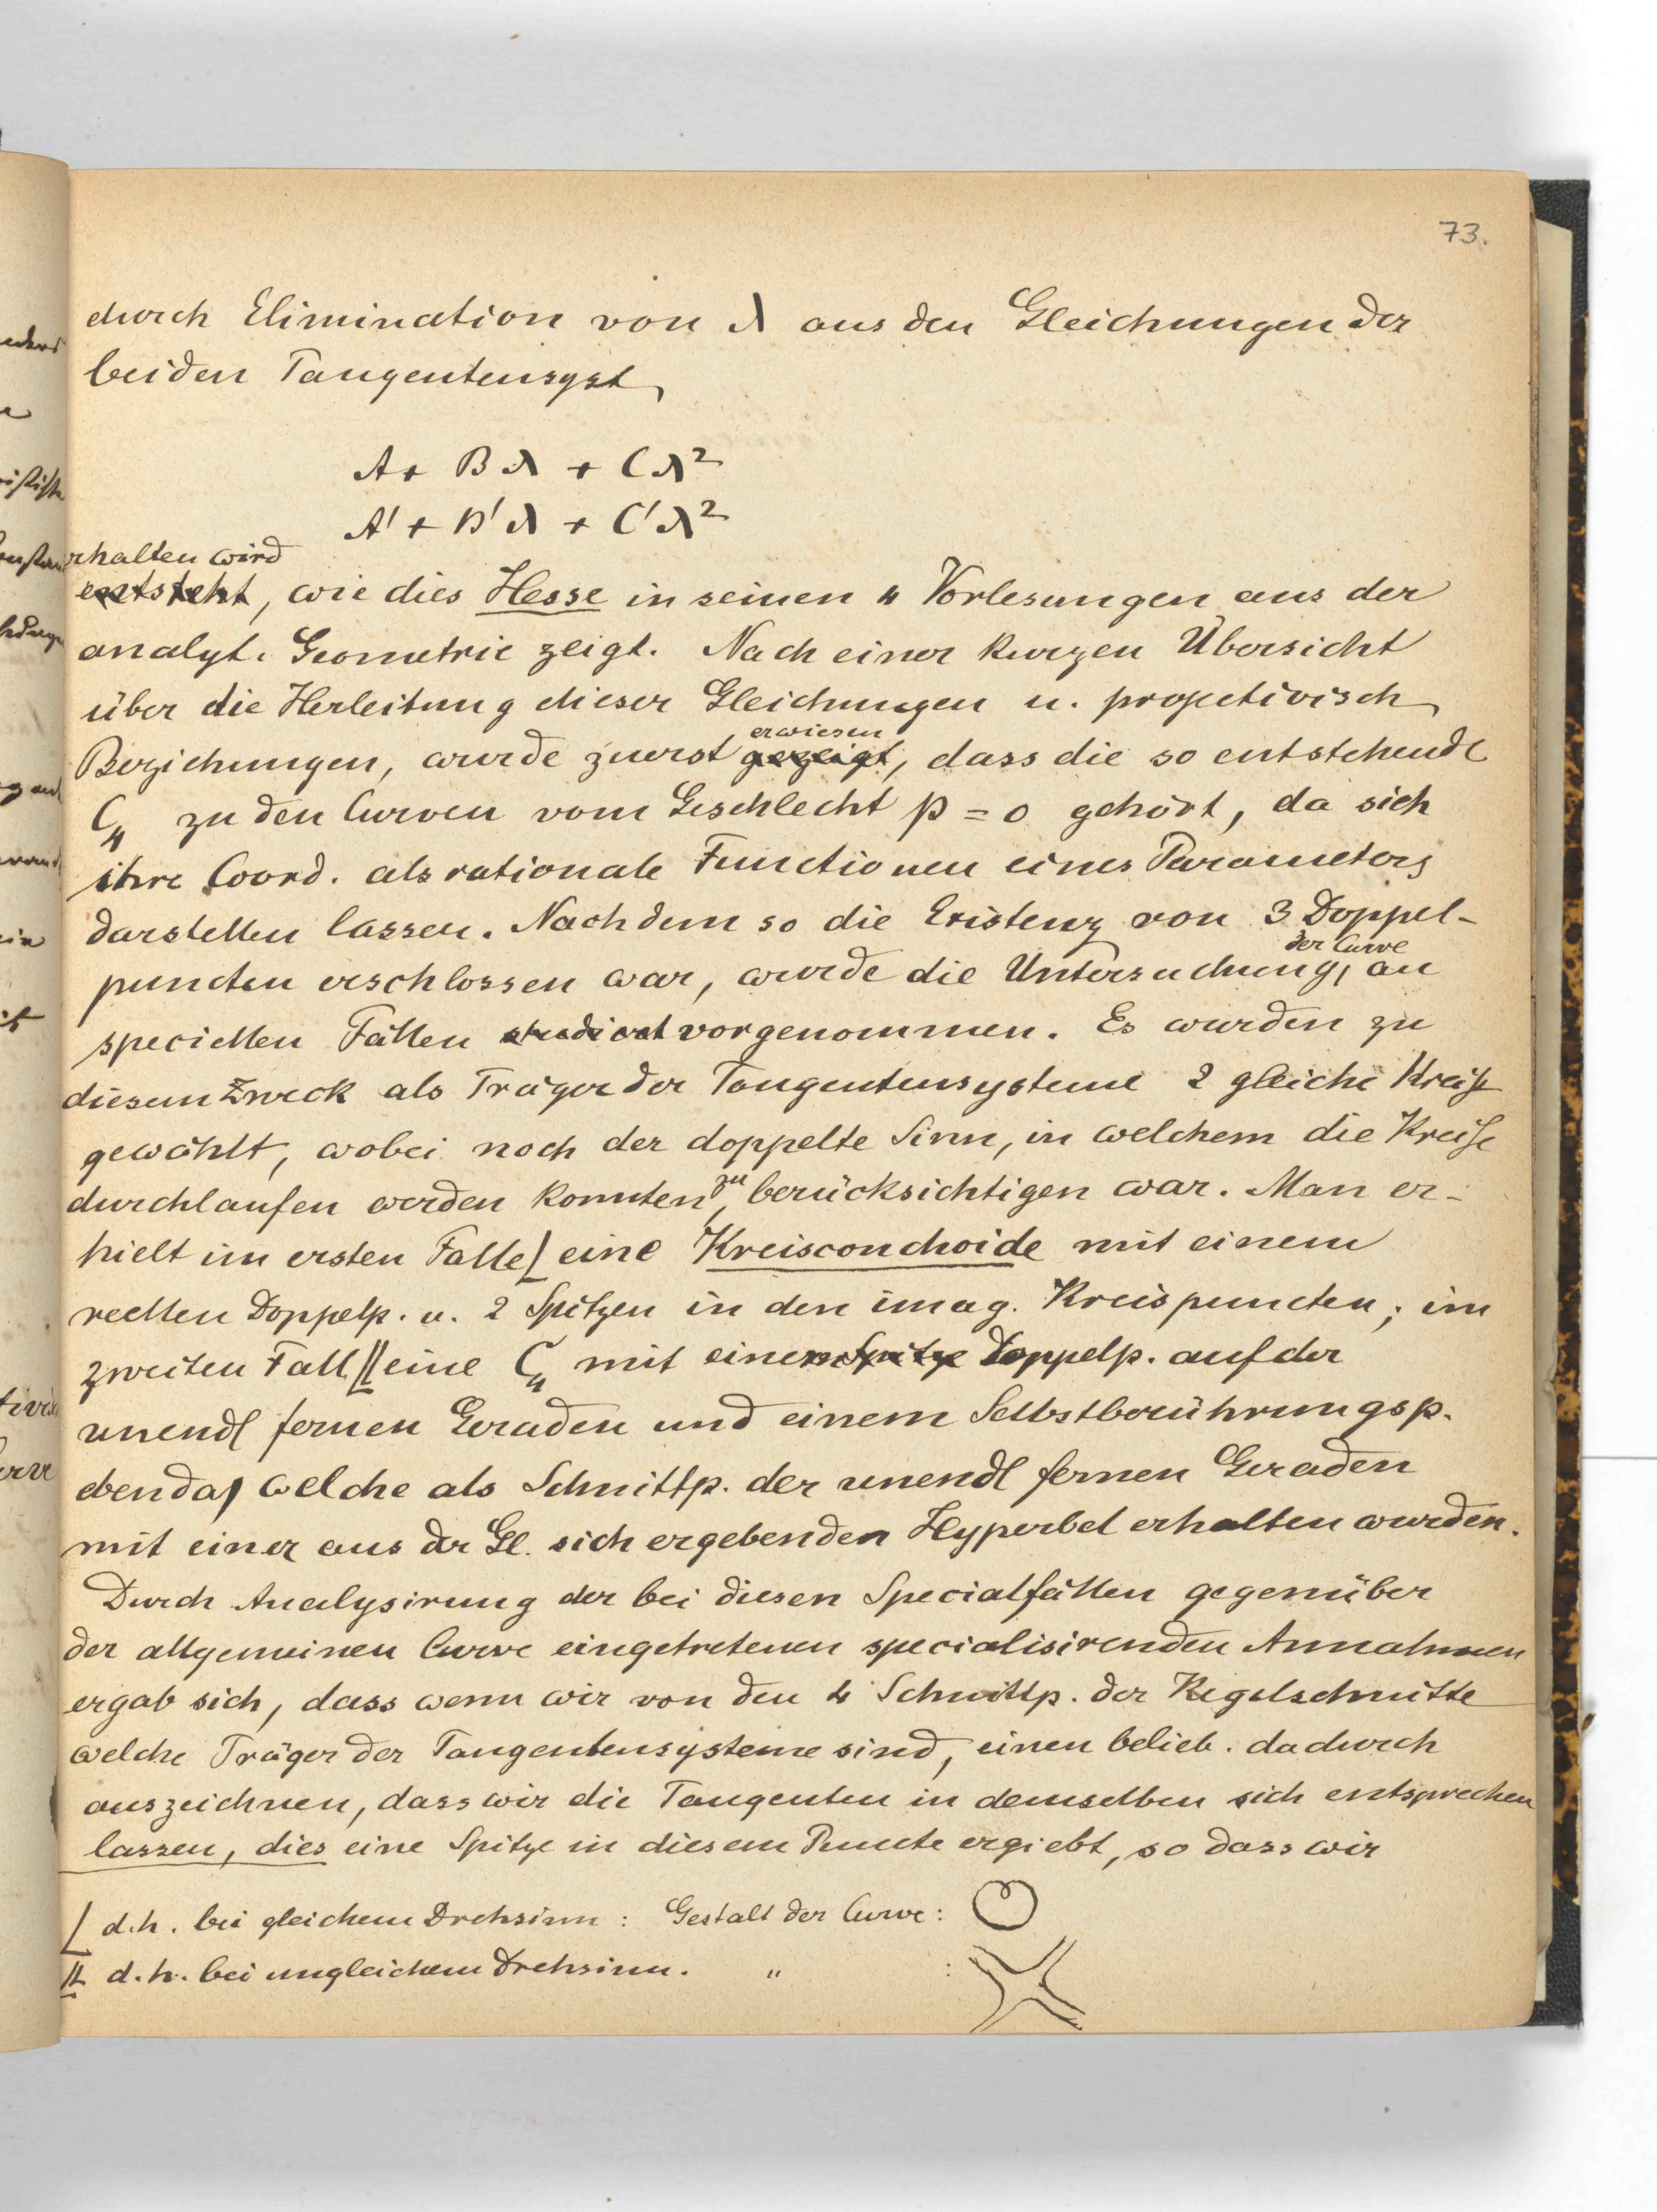 73.
durch Elimination von λ aus den Gleichungen der
beiden Tangentensyst
A + Bλ + Cλ²
A' + B'λ + C'λ²
erhalten wird
entsteht, wie dies Hesse in seinen 4 Vorlesungen aus der
analyt. Geometrie zeigt. Nach einer kurzen Übersicht
über die Herleitung dieser Gleichungen u. projectivisch
erwiesen
Beziehungen, wurde zuerst gezeigt, dass die so entstehende
C₄ zu den Curven vom Geschlecht p = 0 gehört, da sich
ihre Coord. als rationale Functionen eines Parameters
darstellen lassen. Nachdem so die Existenz von 3 Doppel-
der Curve
puncten erschlossen war, wurde die Untersuchung, an
speciellen Fällen studirt vorgenommen. Es wurden zu
diesem Zweck als Träger der Tangentensysteme 2 gleiche Kreise
gewählt, wobei noch der doppelte Sinn, in welchem die Kreise
durchlaufen werden konnten, zu berücksichtigen war. Man er-
hielt im ersten Falle⌊ eine Kreisconchoide mit einem
reellen Doppelp. u. 2 Spitzen in den imag. Kreispuncten; im
zweiten Fall ⌊⌊ eine C₄ mit einem Spitze Doppelp. auf der
unendl fernen Geraden und einem Selbstberührungsp.
ebenda, welche als Schnittp. der unendl fernen Geraden
mit einer aus der Gl. sich ergebenden Hyperbel erhalten wurden.
Durch Analysirung der bei diesen Specialfällen gegenüber
der allgemeinen Curve eingetretenen specialisirenden Annahmen
ergab sich, dass wenn wir von den 4 Schnittp. der Kegelschnitte
welche Träger der Tangentensysteme sind, einen belieb. dadurch
auszeichnen, dass wir die Tangenten in demselben sich entsprechen
lassen, dies eine Spitze in diesem Puncte ergiebt, so dass wir
⌊ d.h. bei gleichem Drehsinn: Gestalt der Curve:
⌊⌊ d.h. bei ungleichem Drehsinn. " :